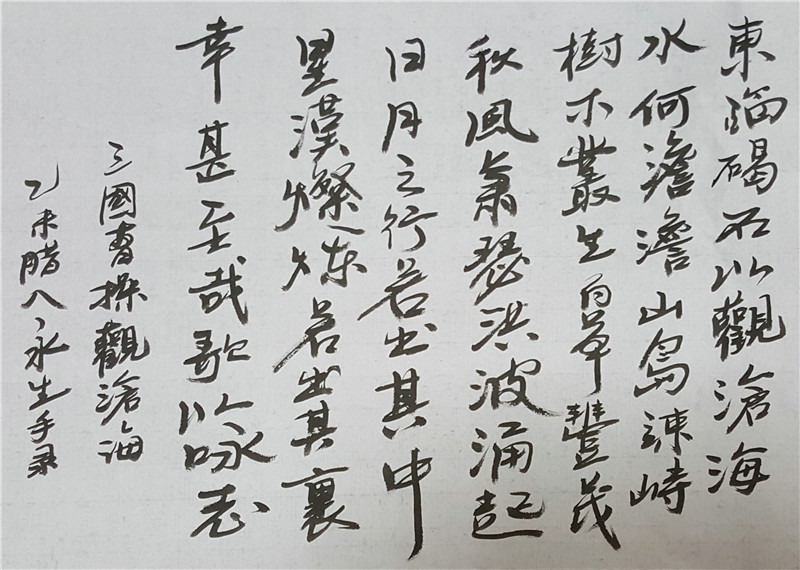 東臨碣石以觀滄海
水何澹澹山島竦峙
樹木叢生百草豐茂
秋風蕭瑟洪波涌起
日月之行若出其中
星漢燦爛若出其裏
幸甚至哉歌以詠志
三國曹操觀滄海
乙未腊八永生手录